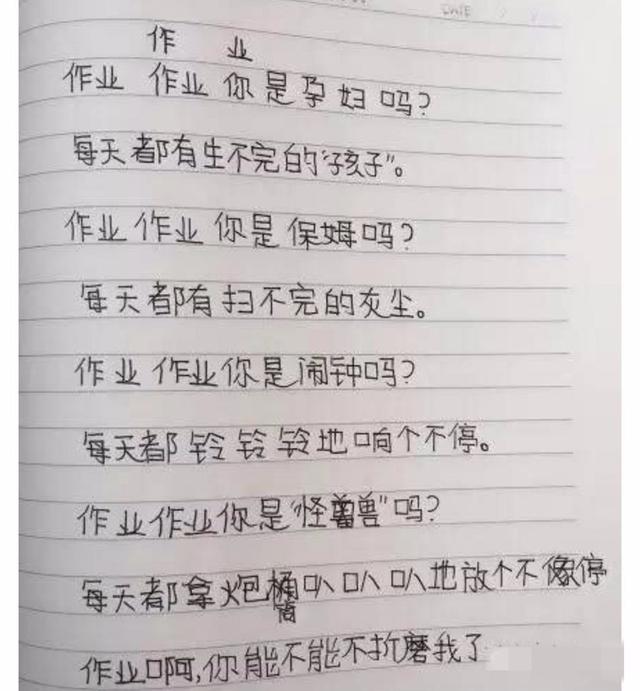 作 业
作业 作业 你是孕妇吗?
每天都有生不完的“孩子”。
作业 作业 你是保姆吗?
每天都有扫不完的灰尘。
作业 作业你是闹钟吗?
每天都铃铃铃地响个不停。
作业作业你是“怪兽”吗?
每天都拿炮筒叭叭叭地放个不停
作业啊,你能不能不折磨我了